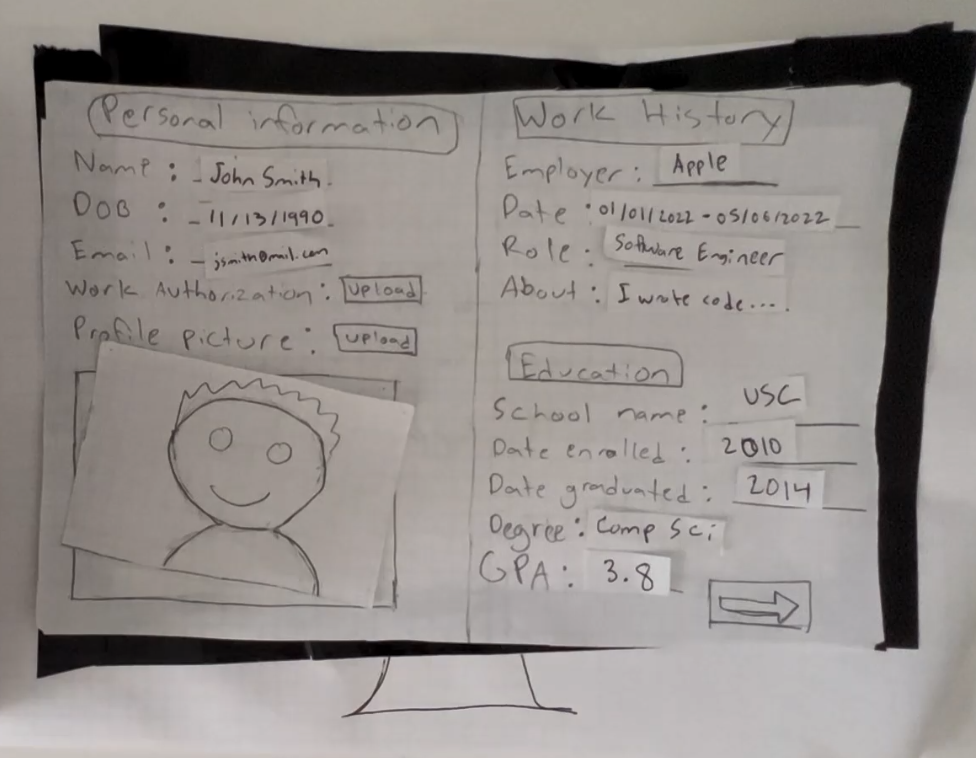 Personal information
Name: John Smith
DOB: 11/13/1990
Email: jsmith@mail.com
Work Authorization: upload
Profile picture: upload
Work History
Employer: Apple
Date: 01/01/2022-05/06/2022
Role: Software Engineer
About: I wrote code...
Education
School name: USC
Date enrolled: 2010
Date graduated: 2014
Degree: Comp Sci
GPA: 3.8